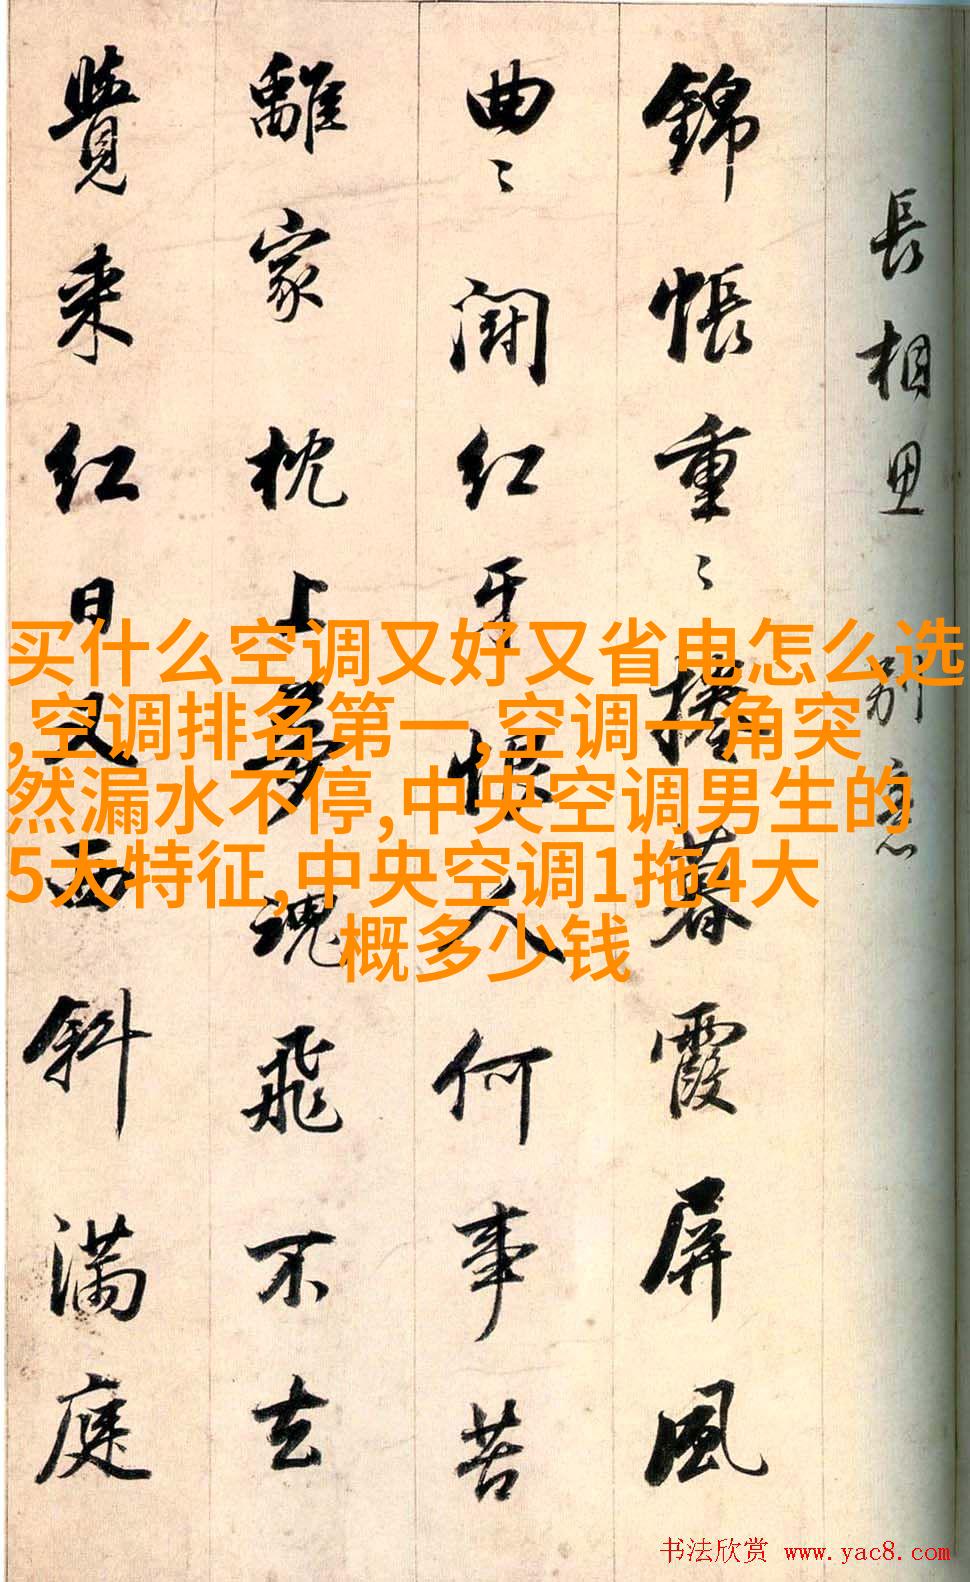 長相思 别意
錦帳重〻捲暮霞屏風
曲〻闘红牙恨人何事苦
離家枕上夢魂飛不去
覺来红日又西斜满庭
买什么空调又好又省电怎么选
,空调排名第一,空调一角突
然漏水不停,中央空调男生的
5大特征,中央空调1拖4大
概多少钱
书法欣赏 www.yac8.com